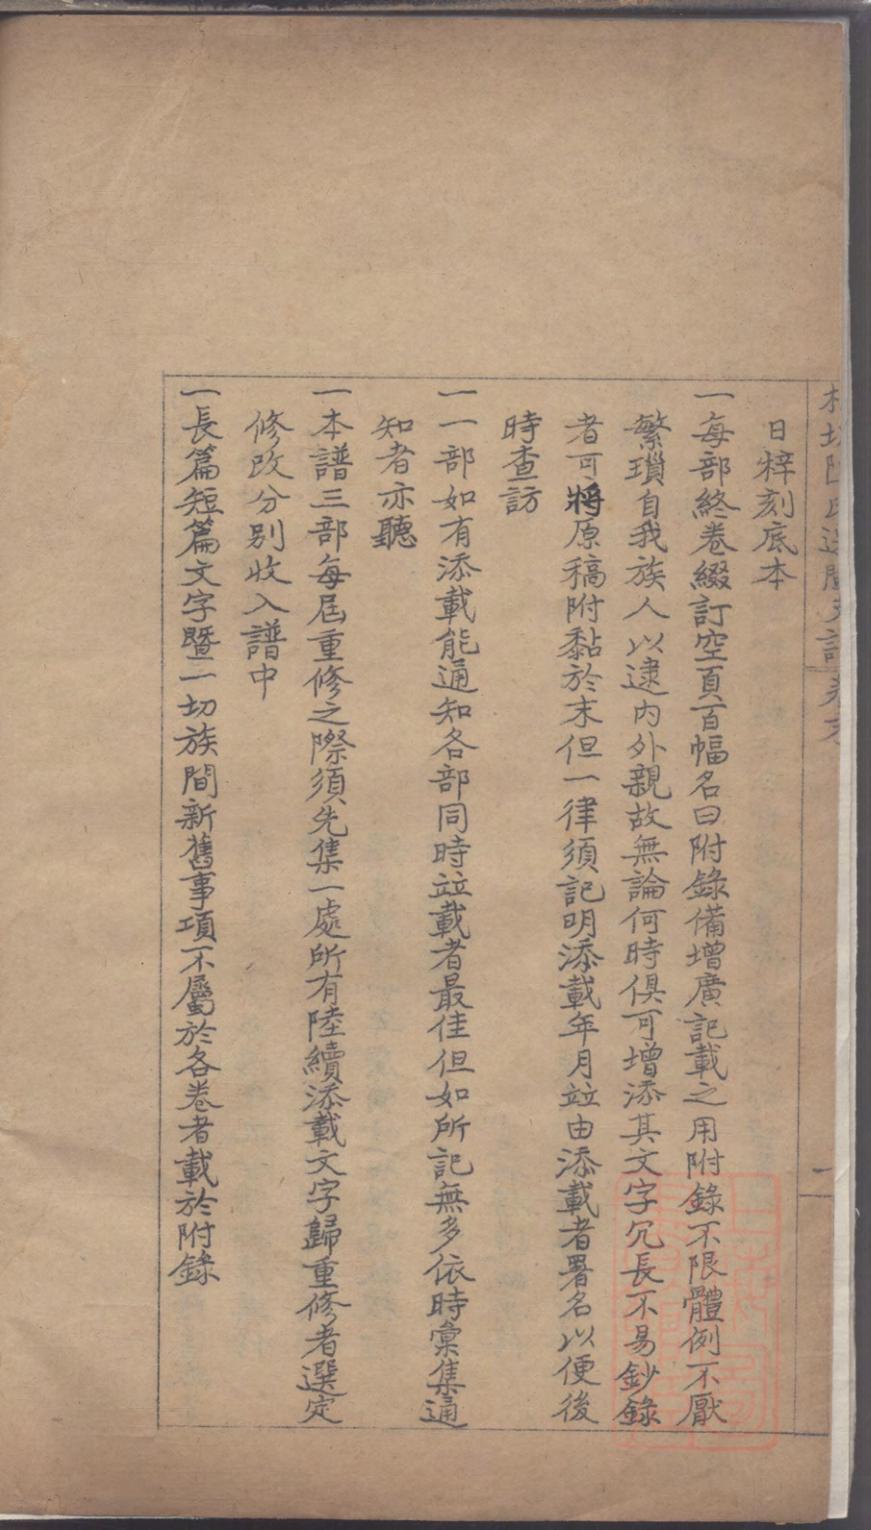 日梓刻底本
一每部終卷綴訂空頁百幅名曰附錄備增廣記載之用附錄不限體例不厭
繁瑣自我族人以逮內外親故無論何時俱可增添其文字冗長不易鈔錄
者可將原稿附黏於末但一律須記明添載年月竝由添載者署名以便後
時查訪
一一部如有添載能通知各部同時竝載者最佳但如所記無多依時彙集通
知者亦聽
一本譜三部每屆重修之際須先集一處所有陸續添載文字歸重修者選定
修改分別收入譜中
一長篇短篇文字暨一切族間新舊事項不屬於各卷者載於附錄